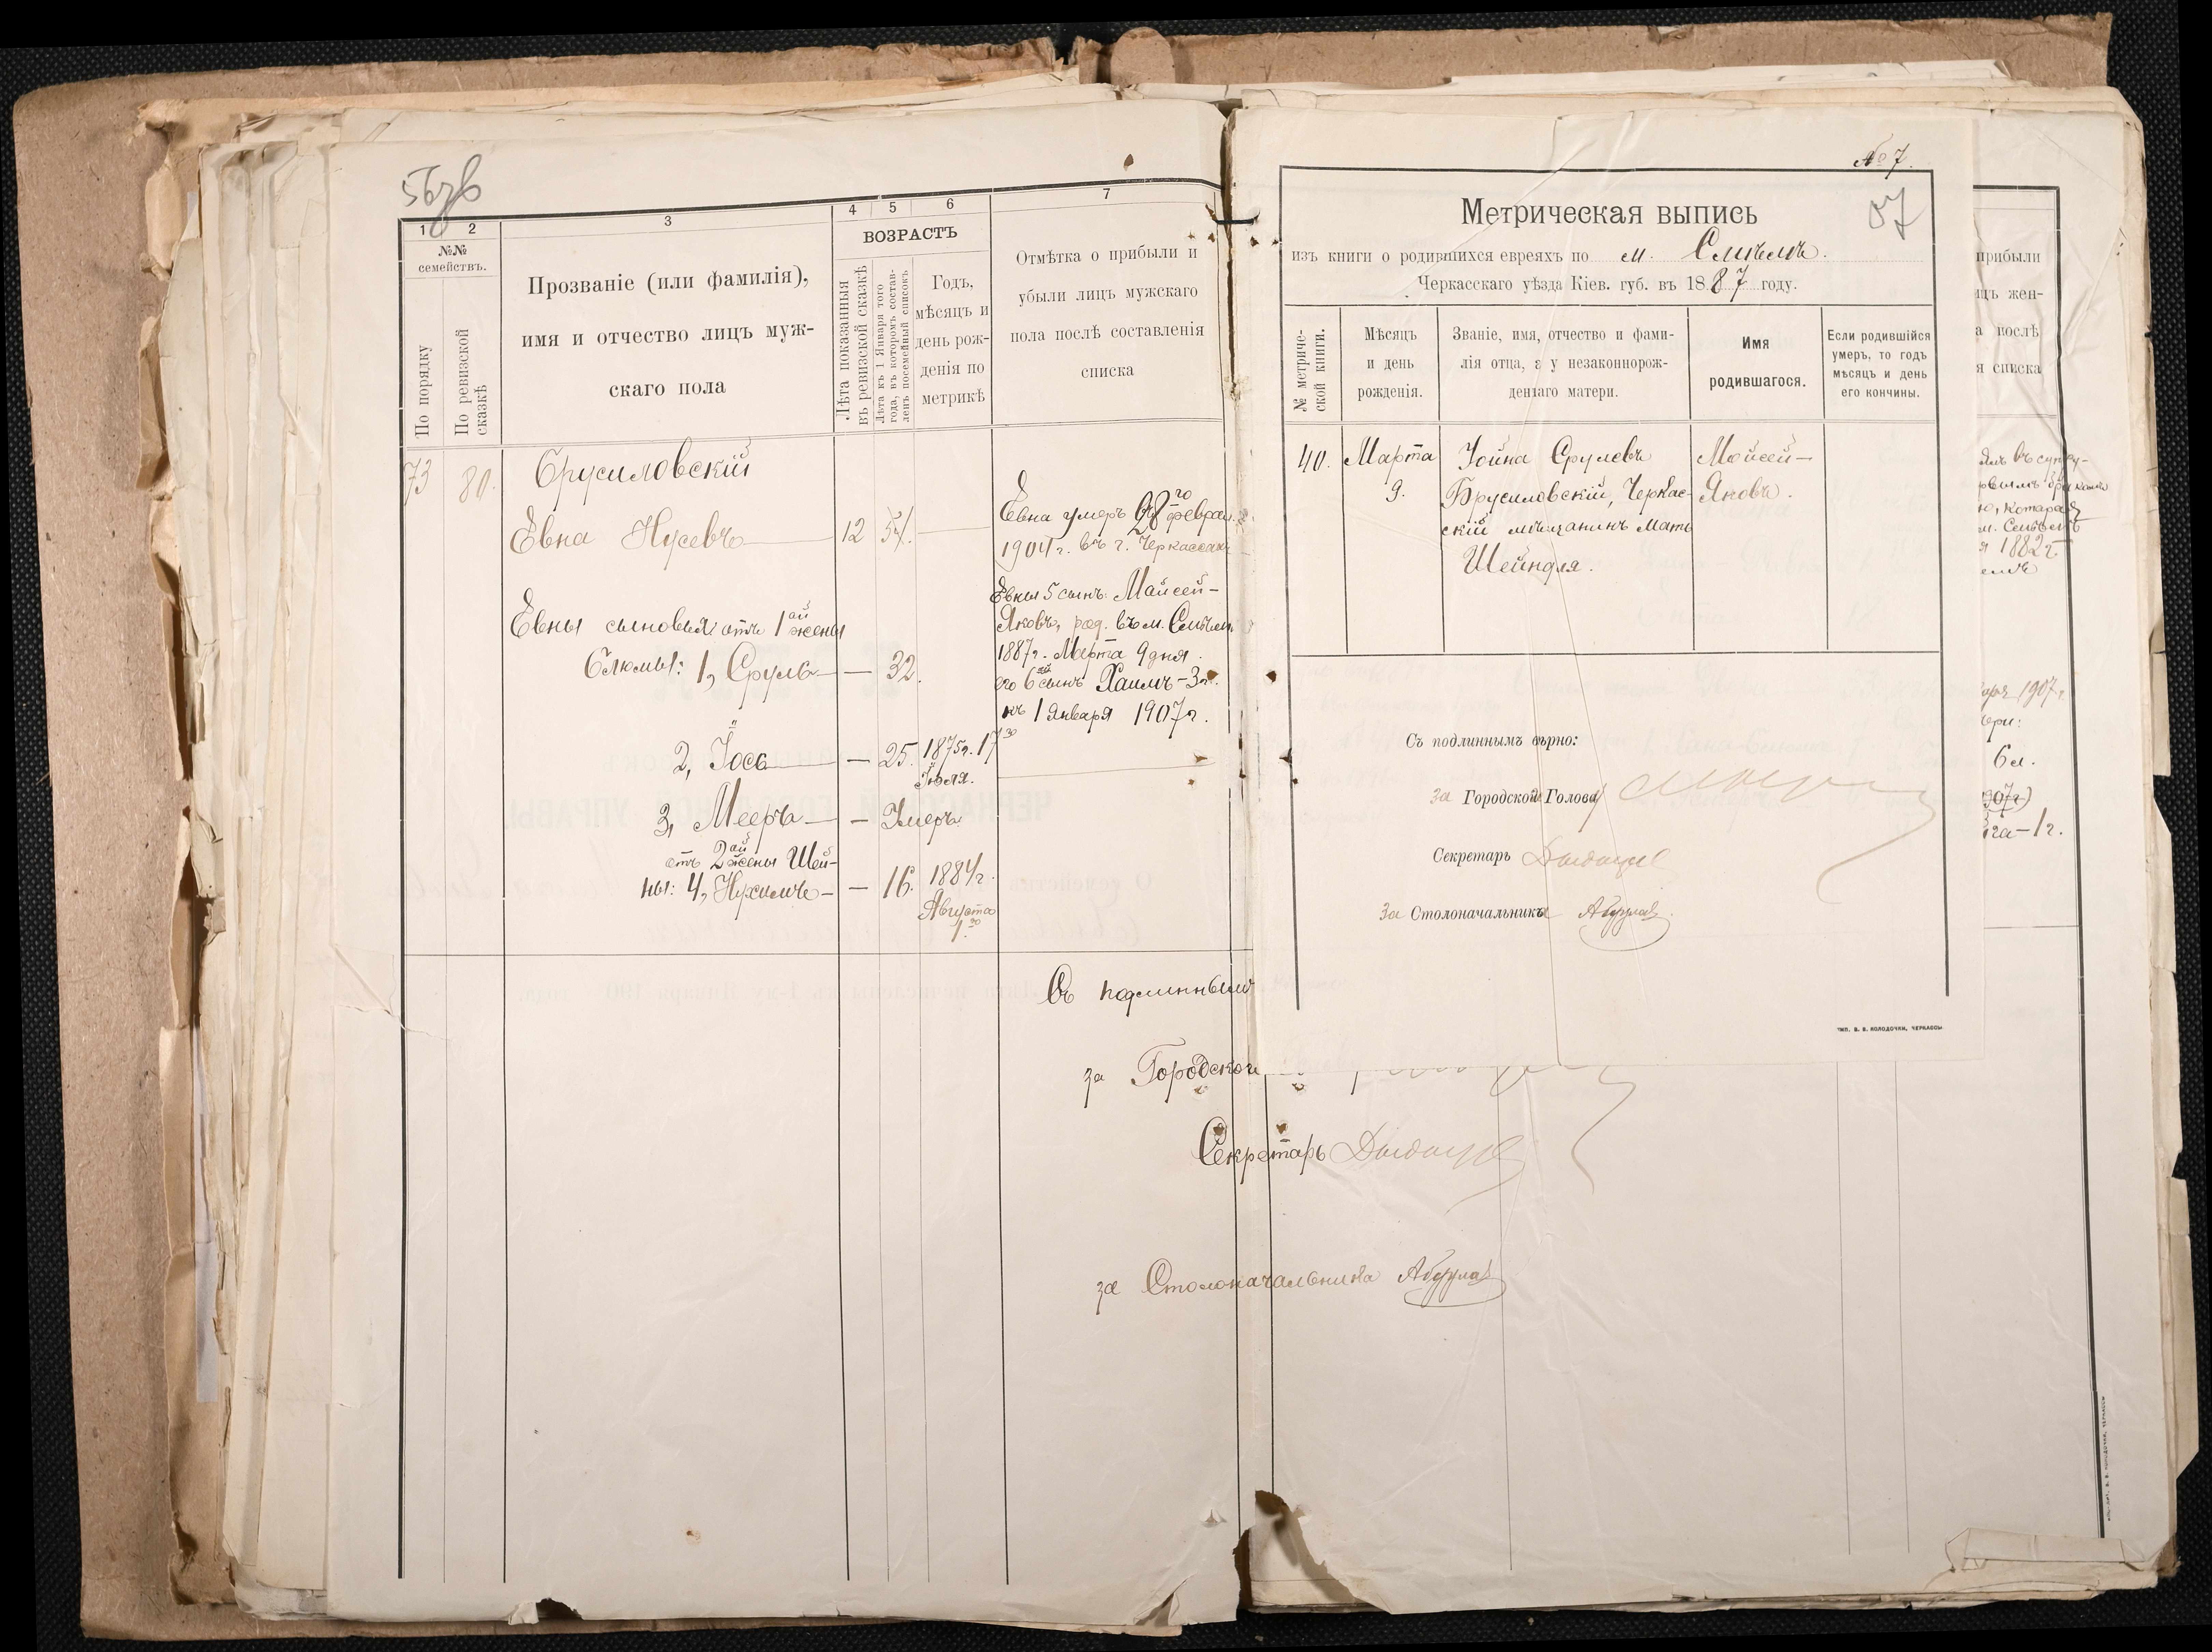 1
2
3
4
5
6
7
№№
семействъ.
По порядку
По ревизской
сказкѣ
Прозваніе (или фамилія),
имя и отчество лицъ муж-
скаго пола
ВОЗРАСТЪ
Лѣта показанныя
въ ревизской сказкѣ
Лѣта къ 1 Января того
года, въ которомъ состав-
ленъ посемейный списокъ
Годъ,
мѣсяцъ и
день рож-
денія по
метрикѣ
Отмѣтка о прибыли и
убыли лицъ мужскаго
пола послѣ составленія
списка
73
80.
Брусиловскій
Евна Нусевъ
12
54.
Евна умеръ 28го феврал.
1904 г. въ г. Черкассахъ
Евны сыновья отъ 1ай жены
Блюмы: 1, Срулъ — — 32.
Евны 5 сынъ: Мойсей-
Яковъ, род. въ м. Смѣлѣ
1887 г. Марта 9 дня.
его 6ай сынъ Хаимъ - 3 г.
къ 1 Января 1907 г.
2, Іось — — 25. 1875 г. 17го
Іюля.
3, Мееръ — — Умеръ
отъ 2ай жены Шей-
ны: 4, Нухимъ — — 16. 1884 г.
Августа
1го
Съ подлиннымъ
за Городского
Секретарь
за Столоначальника
№ 7.
Метрическая выпись
изъ книги о родившихся евреяхъ по м. Смѣлѣ.
Черкасскаго уѣзда Кіев. губ. въ 1887 году.
№ метриче-
ской книги.
Мѣсяцъ
и день
рожденія.
Званіе, имя, отчество и фами-
лія отца, а у незаконнорож-
деннаго матери.
Имя
родившагося.
Если родившійся
умеръ, то годъ
мѣсяцъ и день
его кончины.
40.
Марта
9.
Іойна Срулевъ
Брусиловскій, Черкас-
скій мѣщанинъ Мать
Шейндля.
Мойсей-
Яковъ.
Съ подлиннымъ вѣрно:
За Городской Голова
Секретарь
За Столоначальника
ТИП. В. В. КОЛОДОЧКИ, ЧЕРКАССЫ
прибыли
цъ жен-
а послѣ
я списка
котара
1882 г.
1907 г.
6 л.
907 г)
1 г.